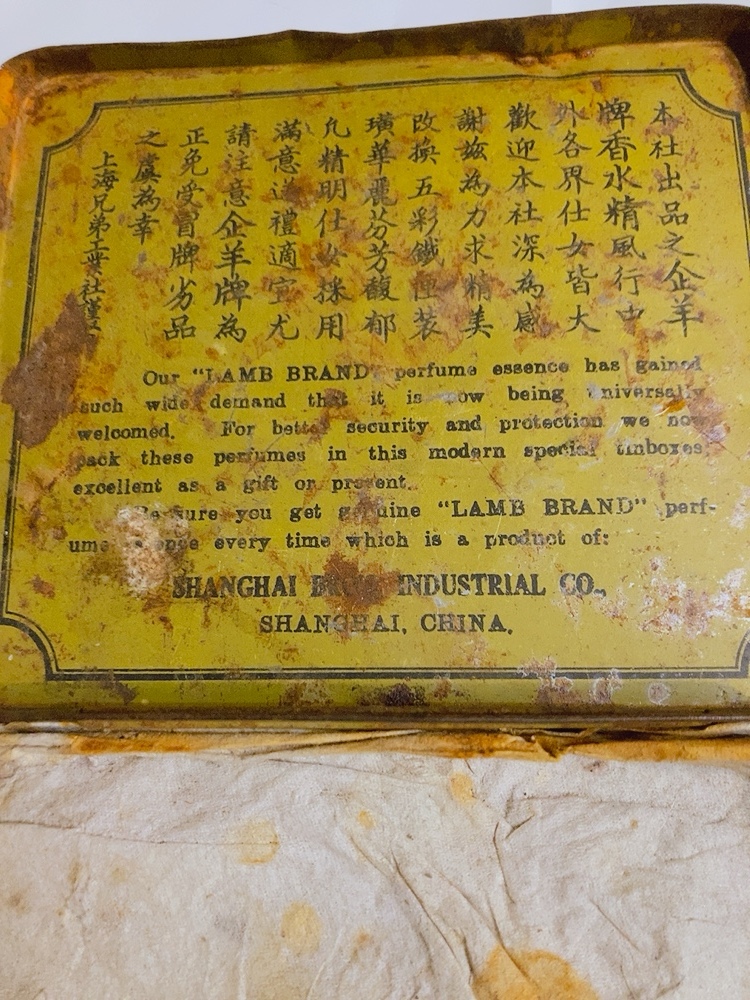 本社出品之企羊
牌香水精風行中
外各界仕女皆大
歡迎本社深為感
謝茲為力求精美
改換五彩鐵匣裝
璜華麗芬芳馥郁
凢精明仕女採用
滿意送禮適宜尤
請注意企羊牌為
正免受冒牌劣品
之虞為幸
上海兄弟工業社謹
Our "LAMB BRAND" perfume essence has gained
such wide demand that it is now being universally
welcomed. For better security and protection we now
pack these perfumes in this modern special tinboxes,
excellent as a gift or present.
Be sure you get genuine "LAMB BRAND" perf-
ume essence every time which is a product of:
SHANGHAI BROS. INDUSTRIAL CO.,
SHANGHAI, CHINA.